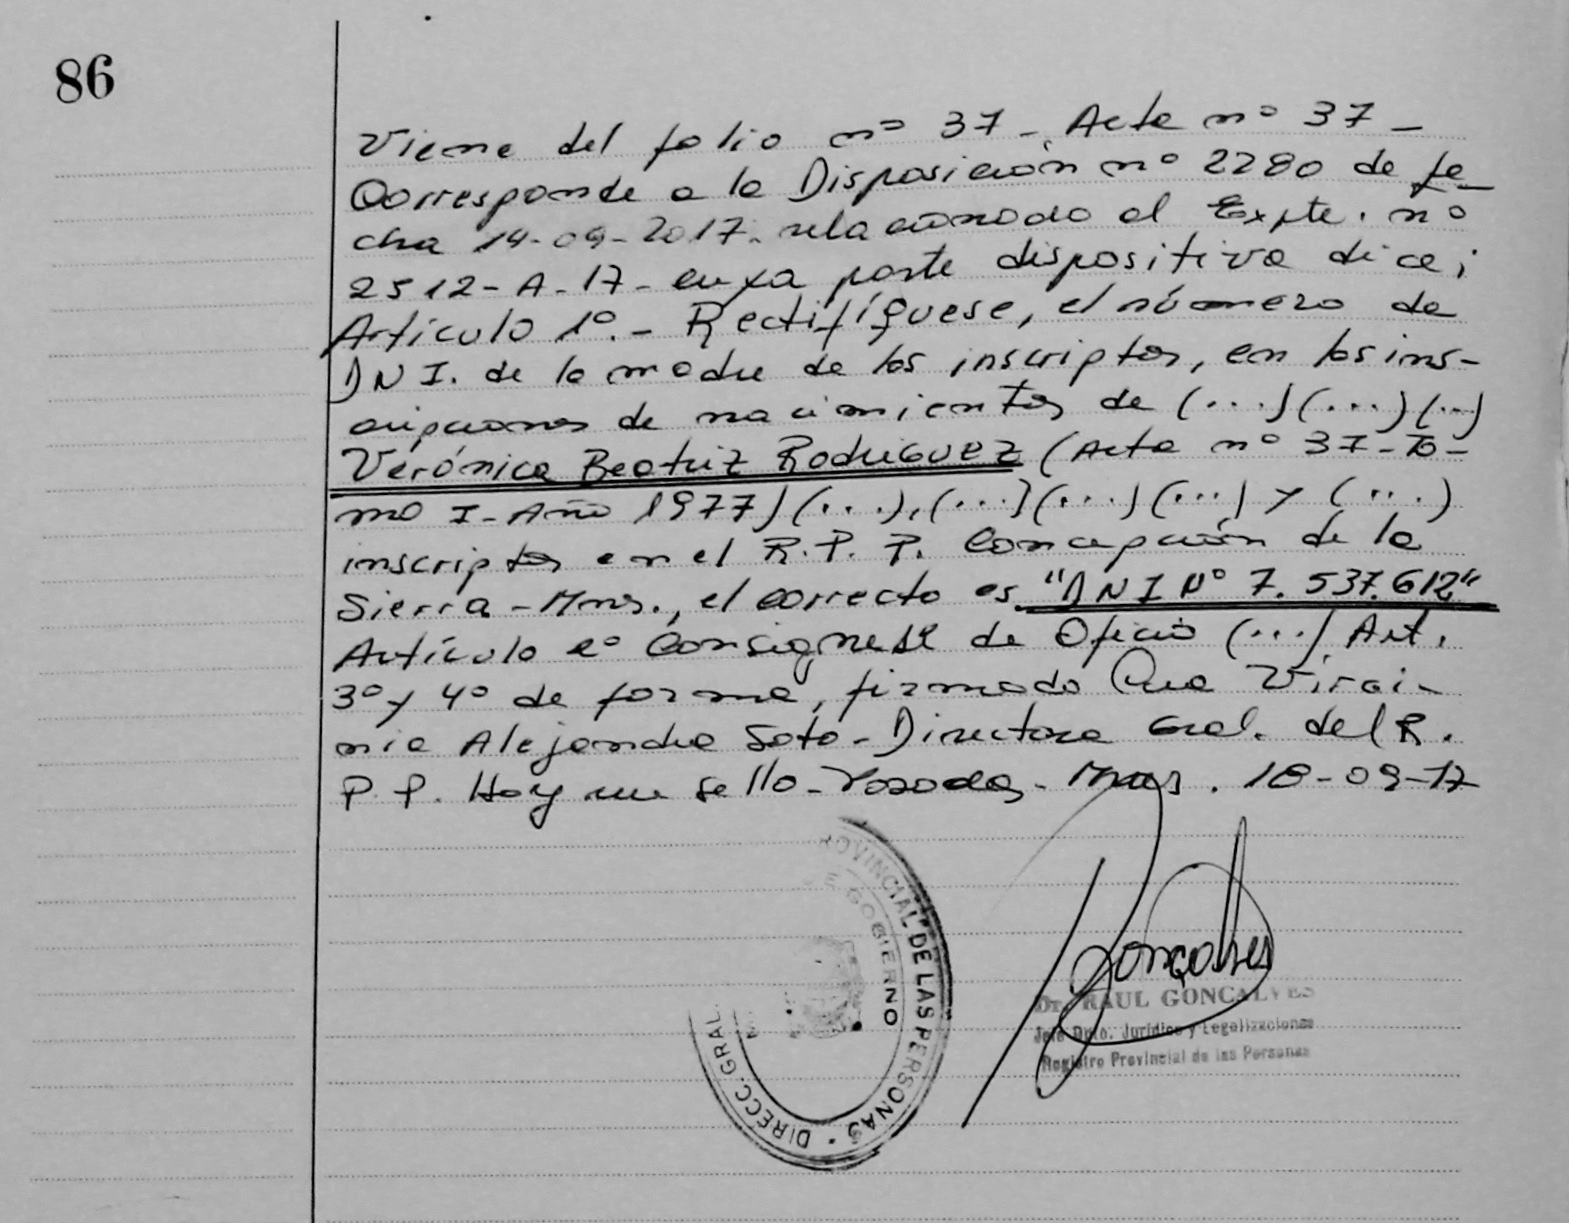 86
Viene del folio nº 37 - Acta nº 37 -
Corresponde a la Disposición nº 2280 de fe-
cha 14-09-2017. relacionado al Expte. nº
2512-A-17- cuya parte dispositiva dice;
Artículo 1º.- Rectifíquese, el número de
DNI. de la madre de los inscriptos, en las ins-
cripciones de nacimientos de (...) (...) (...)
Verónica Beatriz Rodriguez (Acta nº 37-To-
mo I-Año 1977) (...), (...) (...) (...) y (...)
inscriptos en el R.P.P. Concepción de la
Sierra-Mnes., el correcto es "DNI Nº 7.537.612"
Artículo 2º Consignese de Oficio (...) Art.
3º y 4º de forma, firmado Ana Virgi-
nia Alejandra Soto-Directora Gral. del R.
P.P. Hay un sello-Posadas-Mnes. 18-09-17
DIRECC. GRAL. ROVINCIAL DE LAS PERSONAS
E GOBIERNO
Gonçalves
Dr. RAUL GONCALVES
Jefe Dpto. Jurídico y Legalizaciones
Registro Provincial de las Personas